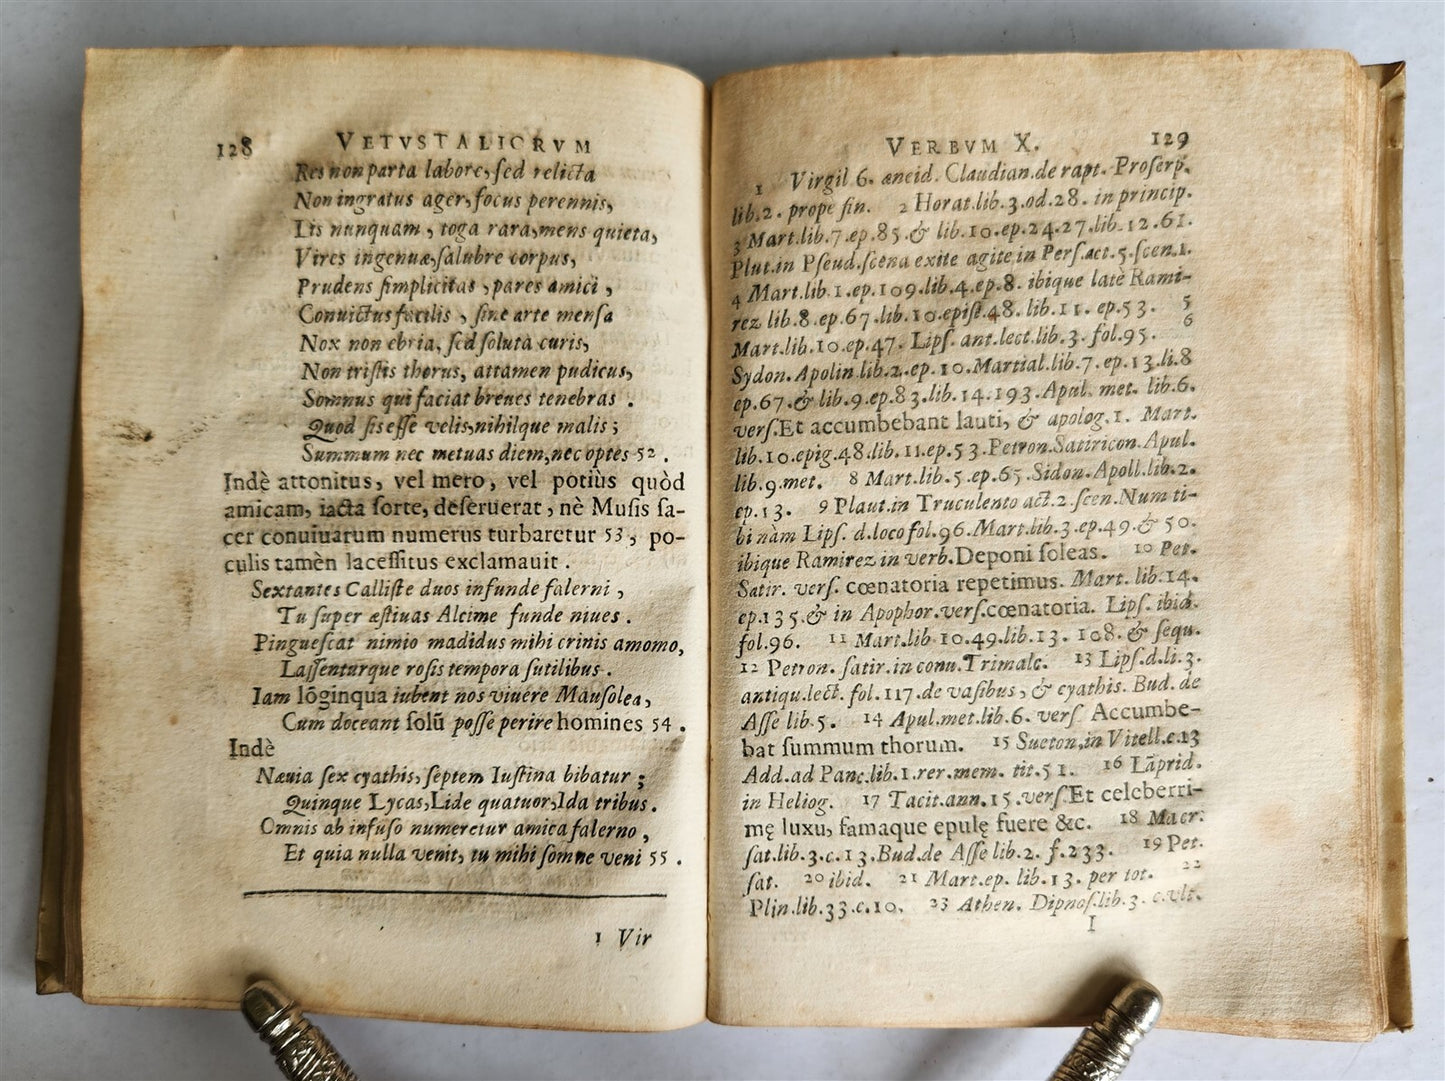 128 VETVSTALICRVM
Res non parta labore, sed relicta
Non ingratus ager, focus perennis,
Lis nunquam, toga rara, mens quieta,
Vires ingenuæ, salubre corpus,
Prudens simplicitas, pares amici,
Conuictus facilis, sine arte mensa
Nox non ebria, sed soluta curis,
Non tristis thorus, attamen pudicus,
Somnus qui faciat breues tenebras.
Quod sis esse velis, nihilque malis;
Summum nec metuas diem, nec optes 52.
Indè attonitus, vel mero, vel potiùs quòd
amicam, iacta sorte, deseruerat, nè Musis sa-
cer conuiuarum numerus turbaretur 53, po-
culis tamèn lacessitus exclamauit.
Sextantes Calliste duos infunde falerni,
Tu super æstiuas Alcime funde niues.
Pinguescat nimio madidus mihi crinis amomo,
Lassenturque rosis tempora sutilibus.
Iam lõginqua iubent nos viuere Mausolea,
Cum doceant solũ posse perire homines 54.
Indè
Næuia sex cyathis, septem Iustina bibatur;
Quinque Lycas, Lide quatuor, Ida tribus.
Omnis ab infuso numeretur amica falerno,
Et quia nulla venit, tu mihi somne veni 55.
1 Vir
VERBVM X. 129
1 Virgil 6. æneid. Claudian. de rapt. Proserp.
lib. 2. prope fin. 2 Horat. lib. 3. od. 28. in princip.
3 Mart. lib. 7. ep. 85. & lib. 10. ep. 24. 27. lib. 12. 61.
Plut. in Pseud. scena exite agite, in Pers. act. 5. scen. 1.
4 Mart. lib. 1. ep. 109. lib. 4. ep. 8. ibique latè Rami-
rez lib. 8. ep. 67. lib. 10. epist. 48. lib. 11. ep. 53. 5
Mart. lib. 10. ep. 47. Lips. ant. lect. lib. 3. fol. 95. 6
Sydon. Apolin lib. 2. ep. 10. Martial. lib. 7. ep. 13. li. 8
ep. 67. & lib. 9. ep. 83. lib. 14. 193. Apul. met. lib. 6.
vers. Et accumbebant lauti, & apolog. 1. Mart.
lib. 10. epig. 48. lib. 11. ep. 53. Petron. Satiricon. Apul.
lib. 9. met. 8 Mart. lib. 5. ep. 65. Sidon. Apoll. lib. 2.
ep. 13. 9 Plaut. in Truculento act. 2. scen. Num ti-
bi nàm Lips. d. loco fol. 96. Mart. lib. 3. ep. 49. & 50.
ibique Ramirez in verb. Deponi soleas. 10 Pet.
Satir. vers. cœnatoria repetimus. Mart. lib. 14.
ep. 135. & in Apophor. vers. cœnatoria. Lips. ibid.
fol. 96. 11 Mart. lib. 10. 49. lib. 13. 108. & sequ.
12 Petron. satir. in conu. Trimalc. 13 Lips. d. li. 3.
antiqu. lect. fol. 117. de vasibus, & cyathis. Bud. de
Asse lib. 5. 14 Apul. met. lib. 6. vers Accumbe-
bat summum thorum. 15 Sueton. in Vitell. c. 13
Add. ad Panc. lib. 1. rer. mem. tit. 51. 16 Lãprid.
in Heliog. 17 Tacit. ann. 15. vers. Et celeberri-
mę luxu, famaque epulę fuere &c. 18 Macr.
sat. lib. 3. c. 13. Bud. de Asse lib. 2. f. 233. 19 Pet.
sat. 20 ibid. 21 Mart. ep. lib. 13. per tot. 22
Plin. lib. 33. c. 10. 23 Athen. Dipnos. lib. 3. c. vlt.
I